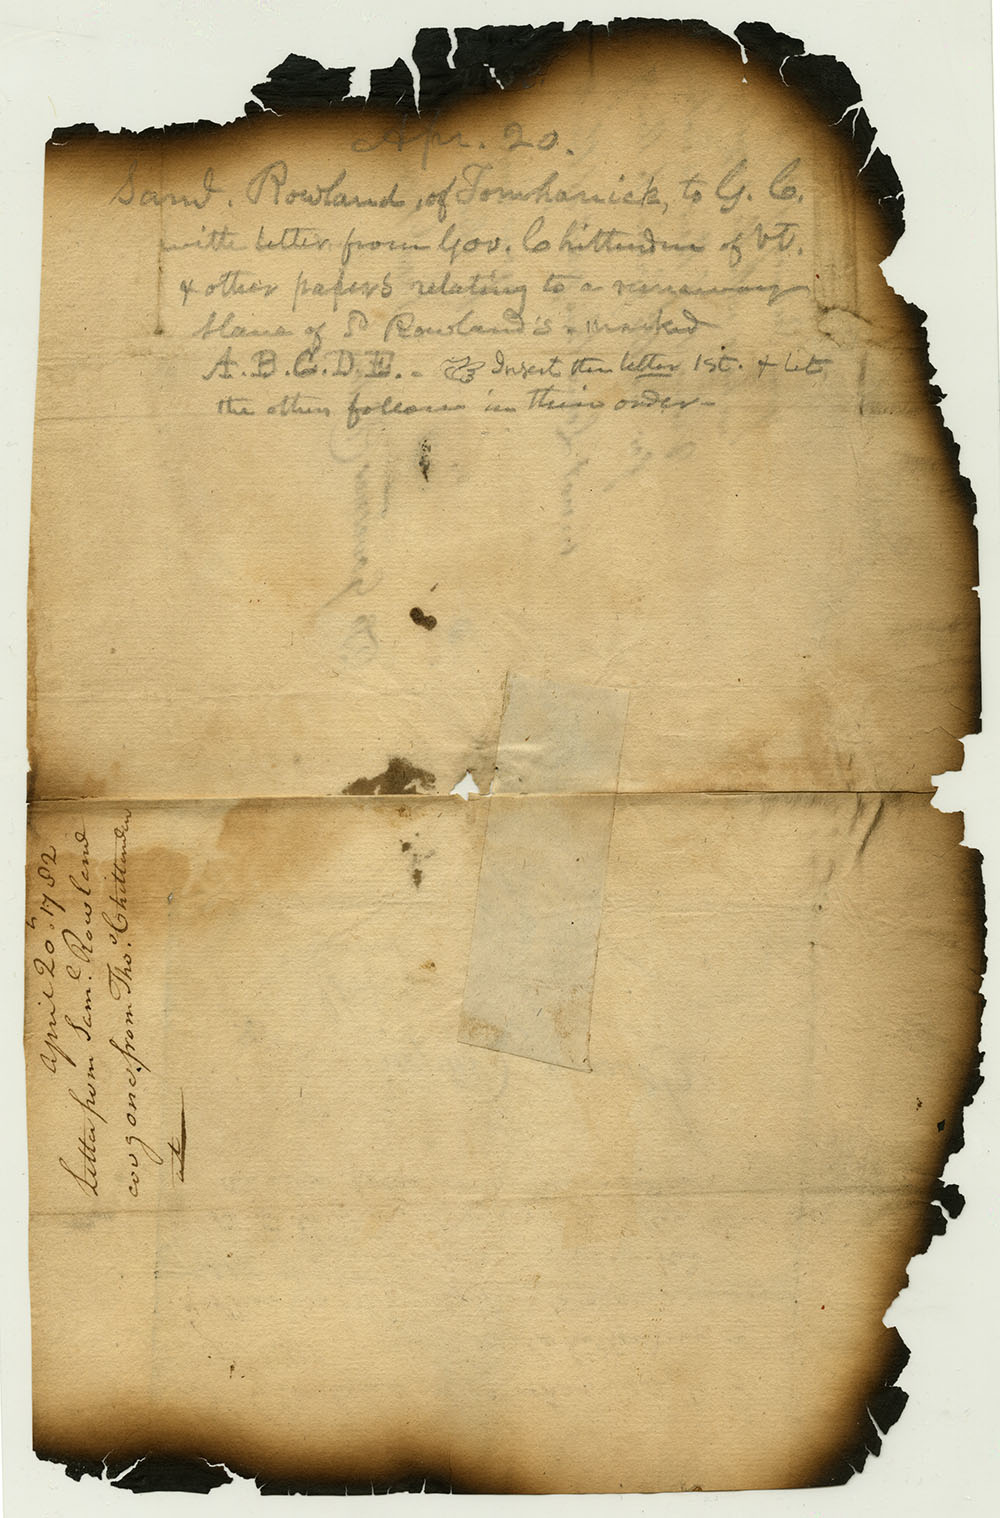 Apr. 20.
Saml. Rowland, of Tomhanick, to G. C.
with letter from Gov. Chittenden of VT.
& other papers relating to a runaway
slave of Sd Rowland's - marked
A. B. C. D. E. - Insert the letter 1st. & let
the others follow in their order -
April 20th. 1782
Letter from Saml. Rowland
covg one from Thos. Chittenden